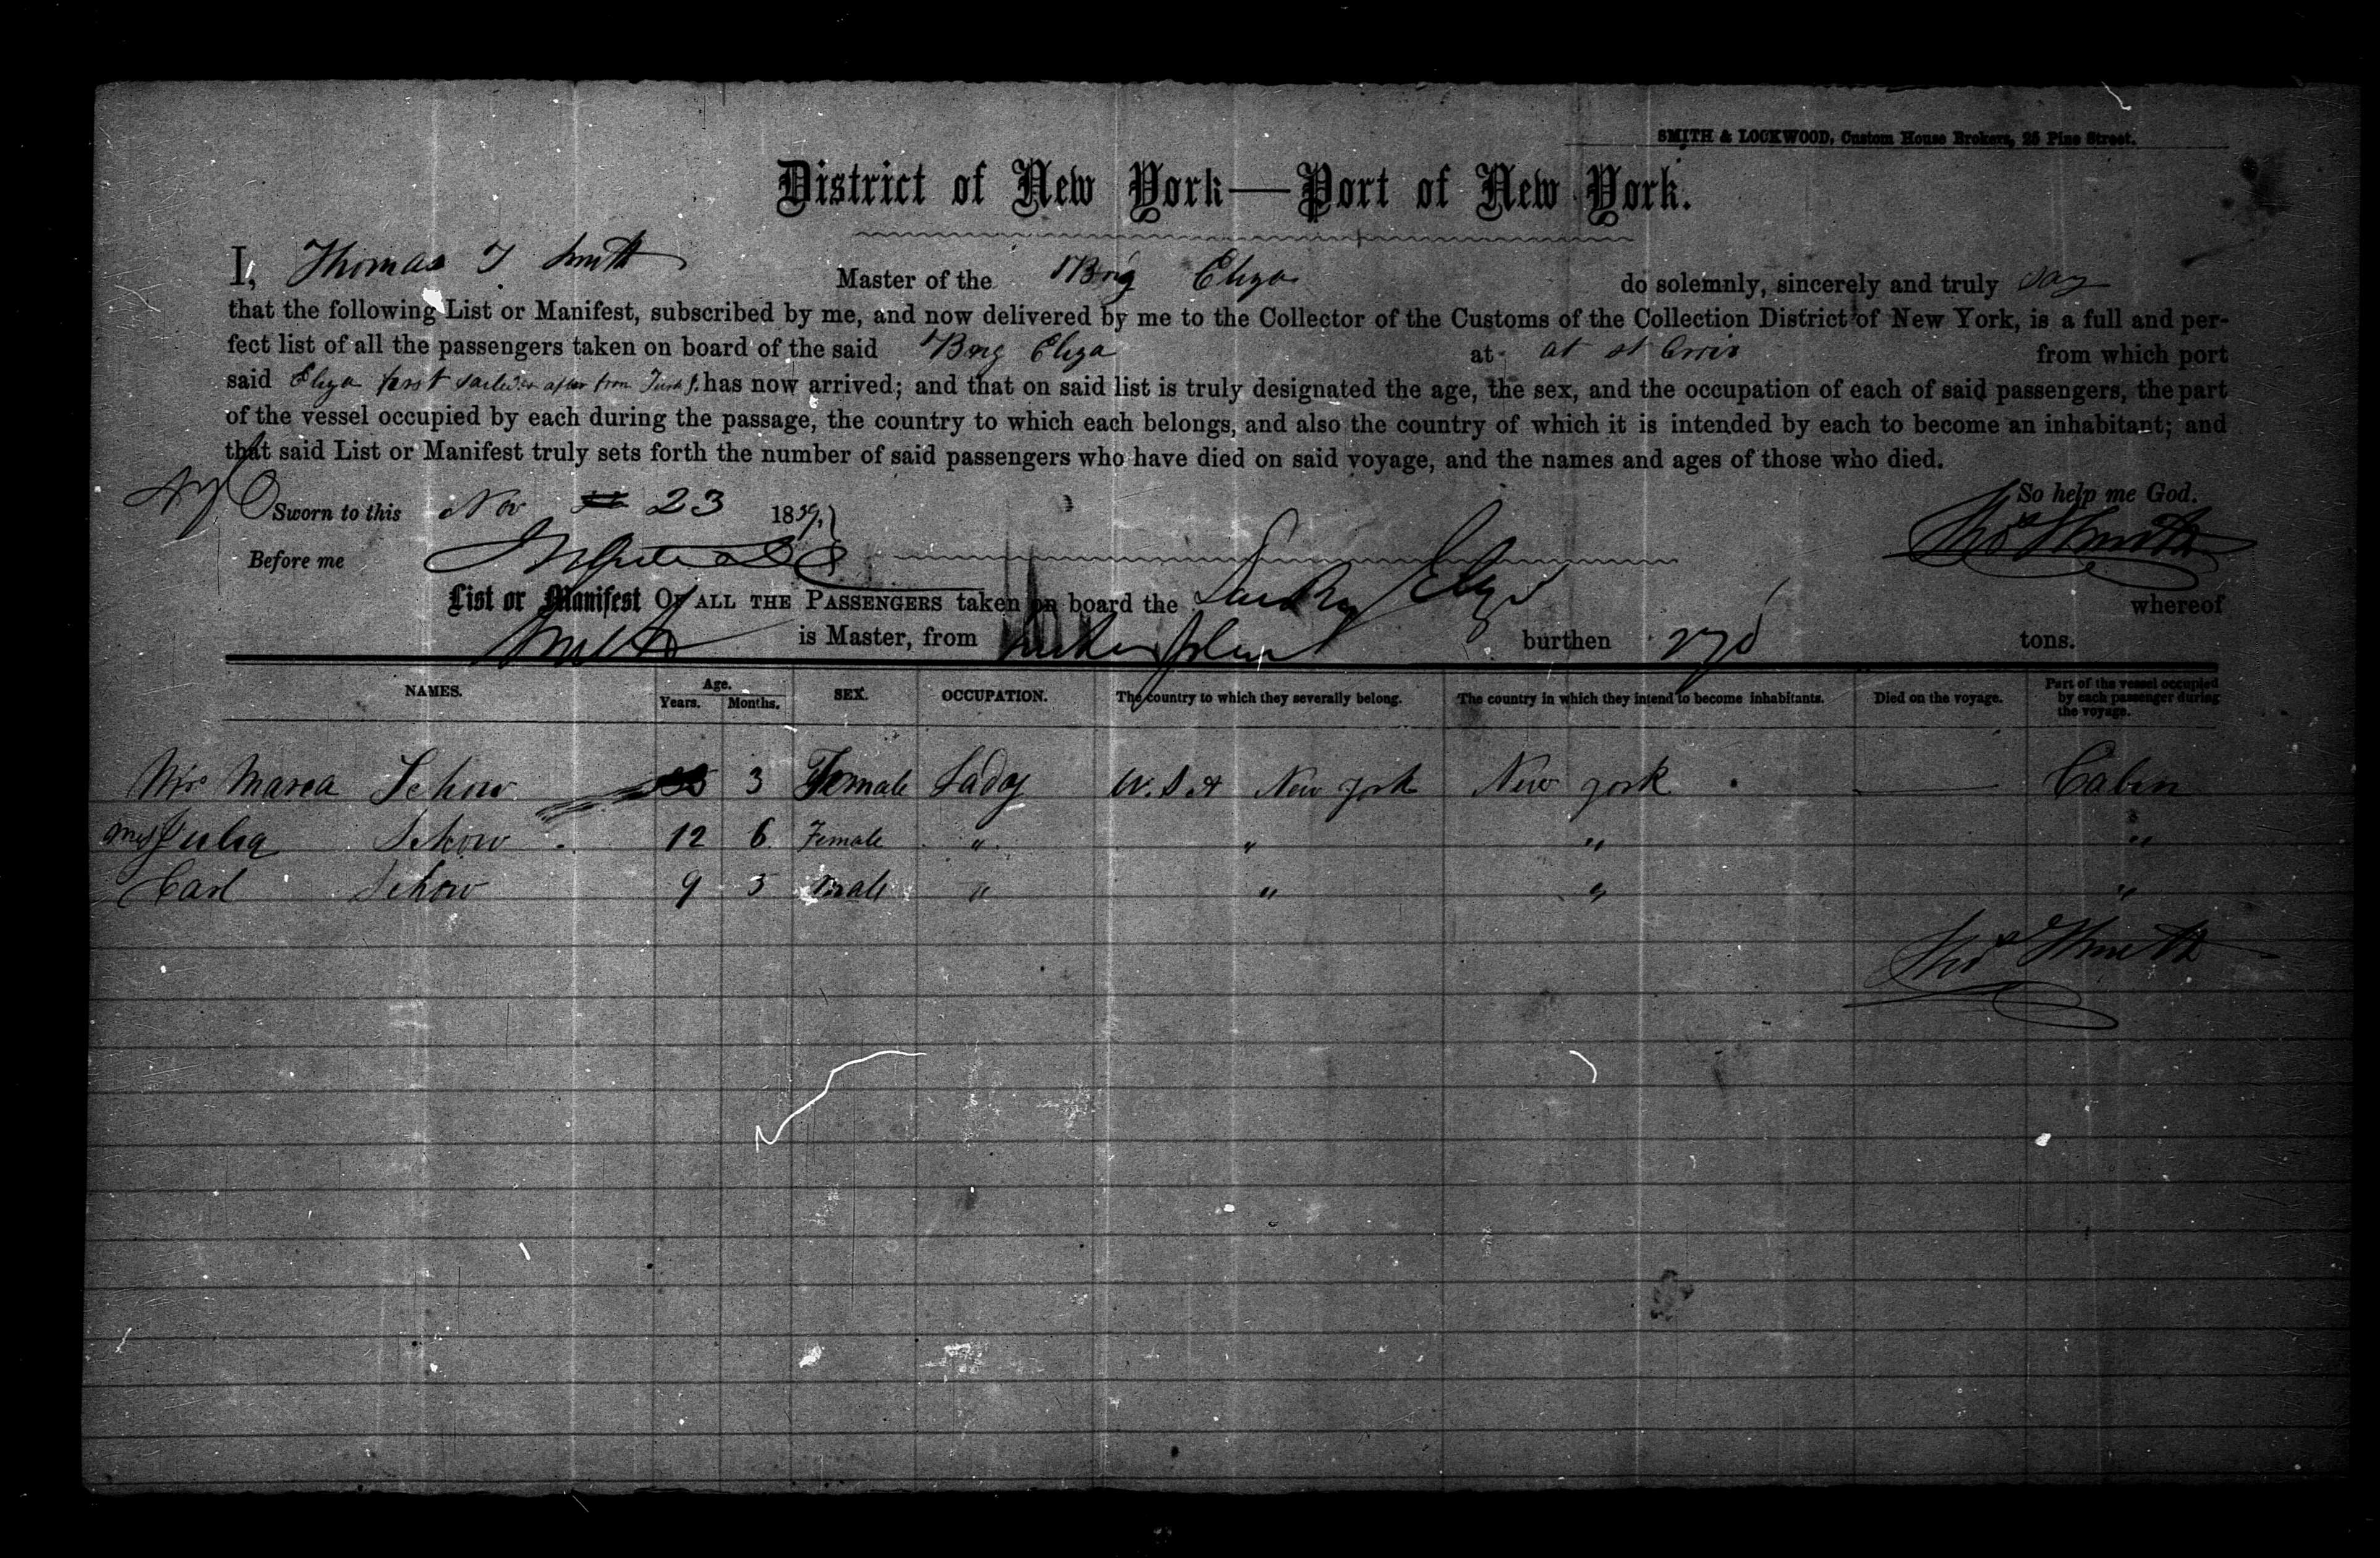 SMITH & LOCKWOOD, Custom House Brokers, 25 Pine Street.
District of New York—Port of New York.
I, Thomas T Smith Master of the Brig Eliza do solemnly, sincerely and truly say
that the following List or Manifest, subscribed by me, and now delivered by me to the Collector of the Customs of the Collection District of New York, is a full and per-
fect list of all the passengers taken on board of the said Brig Eliza at at st Croix from which port
said Eliza first sailed after from Turks I. has now arrived; and that on said list is truly designated the age, the sex, and the occupation of each of said passengers, the part
of the vessel occupied by each during the passage, the country to which each belongs, and also the country of which it is intended by each to become an inhabitant; and
that said List or Manifest truly sets forth the number of said passengers who have died on said voyage, and the names and ages of those who died.
So help me God.
Sworn to this Nov 23 1859, Thos Smith
Before me
List or Manifest OF ALL THE PASSENGERS taken on board the Eliza whereof
Smith is Master, from Turks Island burthen tons.
NAMES. Age. Years. Months. SEX. OCCUPATION. The country to which they severally belong. The country in which they intend to become inhabitants. Died on the voyage. Part of the vessel occupied by each passenger during the voyage.
Mrs Maria Schow 3 Female Lady U.S.A New york New york Cabin
Miss Julia Schow 12 6 Female " " " "
Carl Schow 9 5 male " " " "
Thos Smith